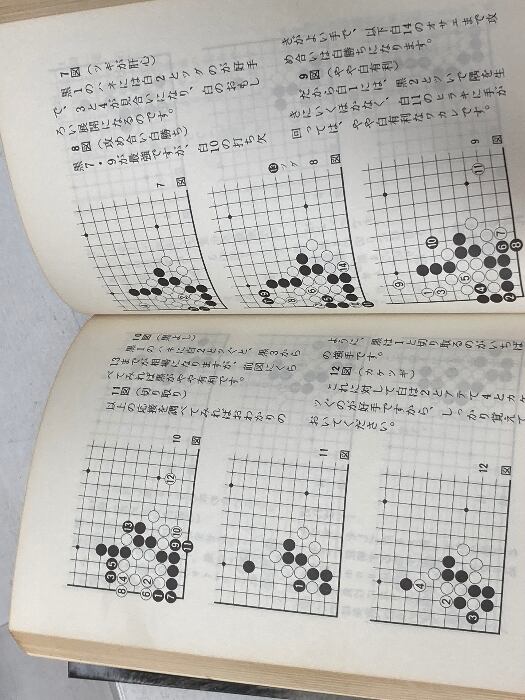 7図(ツギが肝心)
黒1のハネには白2とツグのが好手
で、3と5が見合いになり、白のおもし
ろい展開になるのです。
8図(攻め合い白勝ち)
黒7・9が最強ですが、白10の打ち欠
きがよい手で、以下白14のオサエまで攻
め合いは白勝ちになります。
9図(やや白有利)
だから白1には、黒2とハイで隅を生
きにいくほかなく、白11のヒラキに手が
回っては、やや白有利なワカレです。
7図
8図
⓭ツグ
9図
10図(黒よし)
黒1のハネに白2とツぐと、黒3から
13までが相場になりますが、前図にくら
べてみれば黒がやや有利です。
11図(切り取り)
以上の応接を調べてみればおわかりの
ように、黒は1と切り取るのがいちば
の強手です。
12図(カケツギ)
これに対して白は2とアテて4とカケ
ツぐのが好手ですから、しっかり覚えて
おいてください。
10図
11図
12図